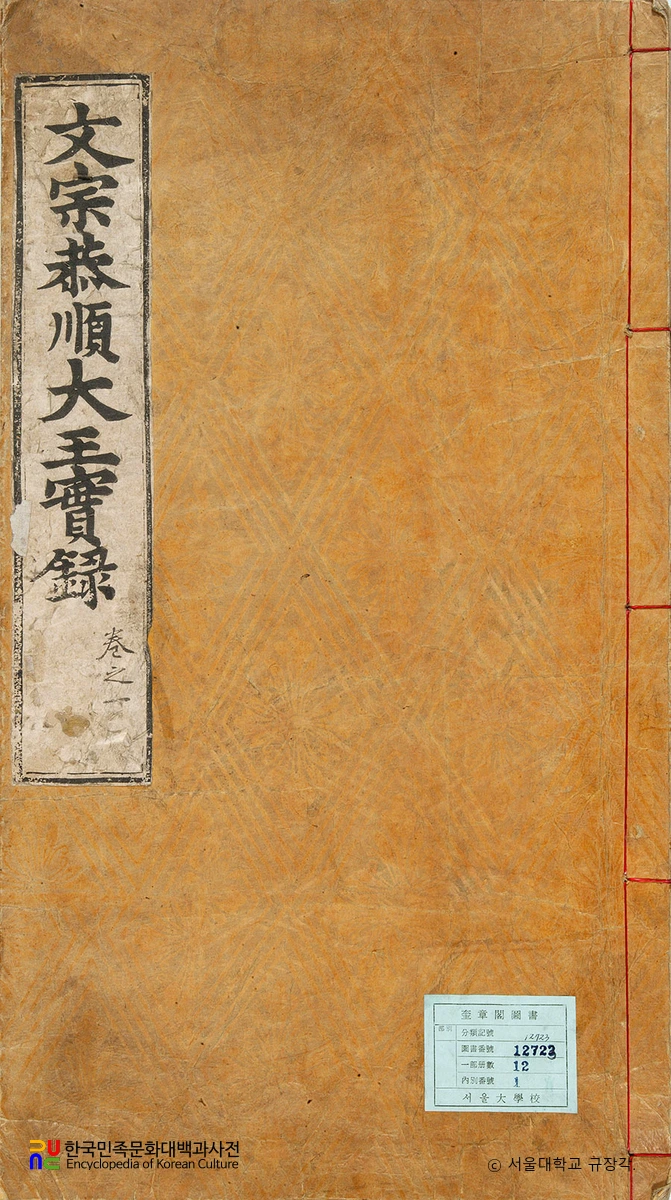 文宗恭順大王實錄
卷之一
奎章閣圖書
部別
分類記號 12723
圖書番號 12723
一部册數 12
內別番號 1
서울大學校
한국민족문화대백과사전
Encyclopedia of Korean Culture
© 서울대학교 규장각